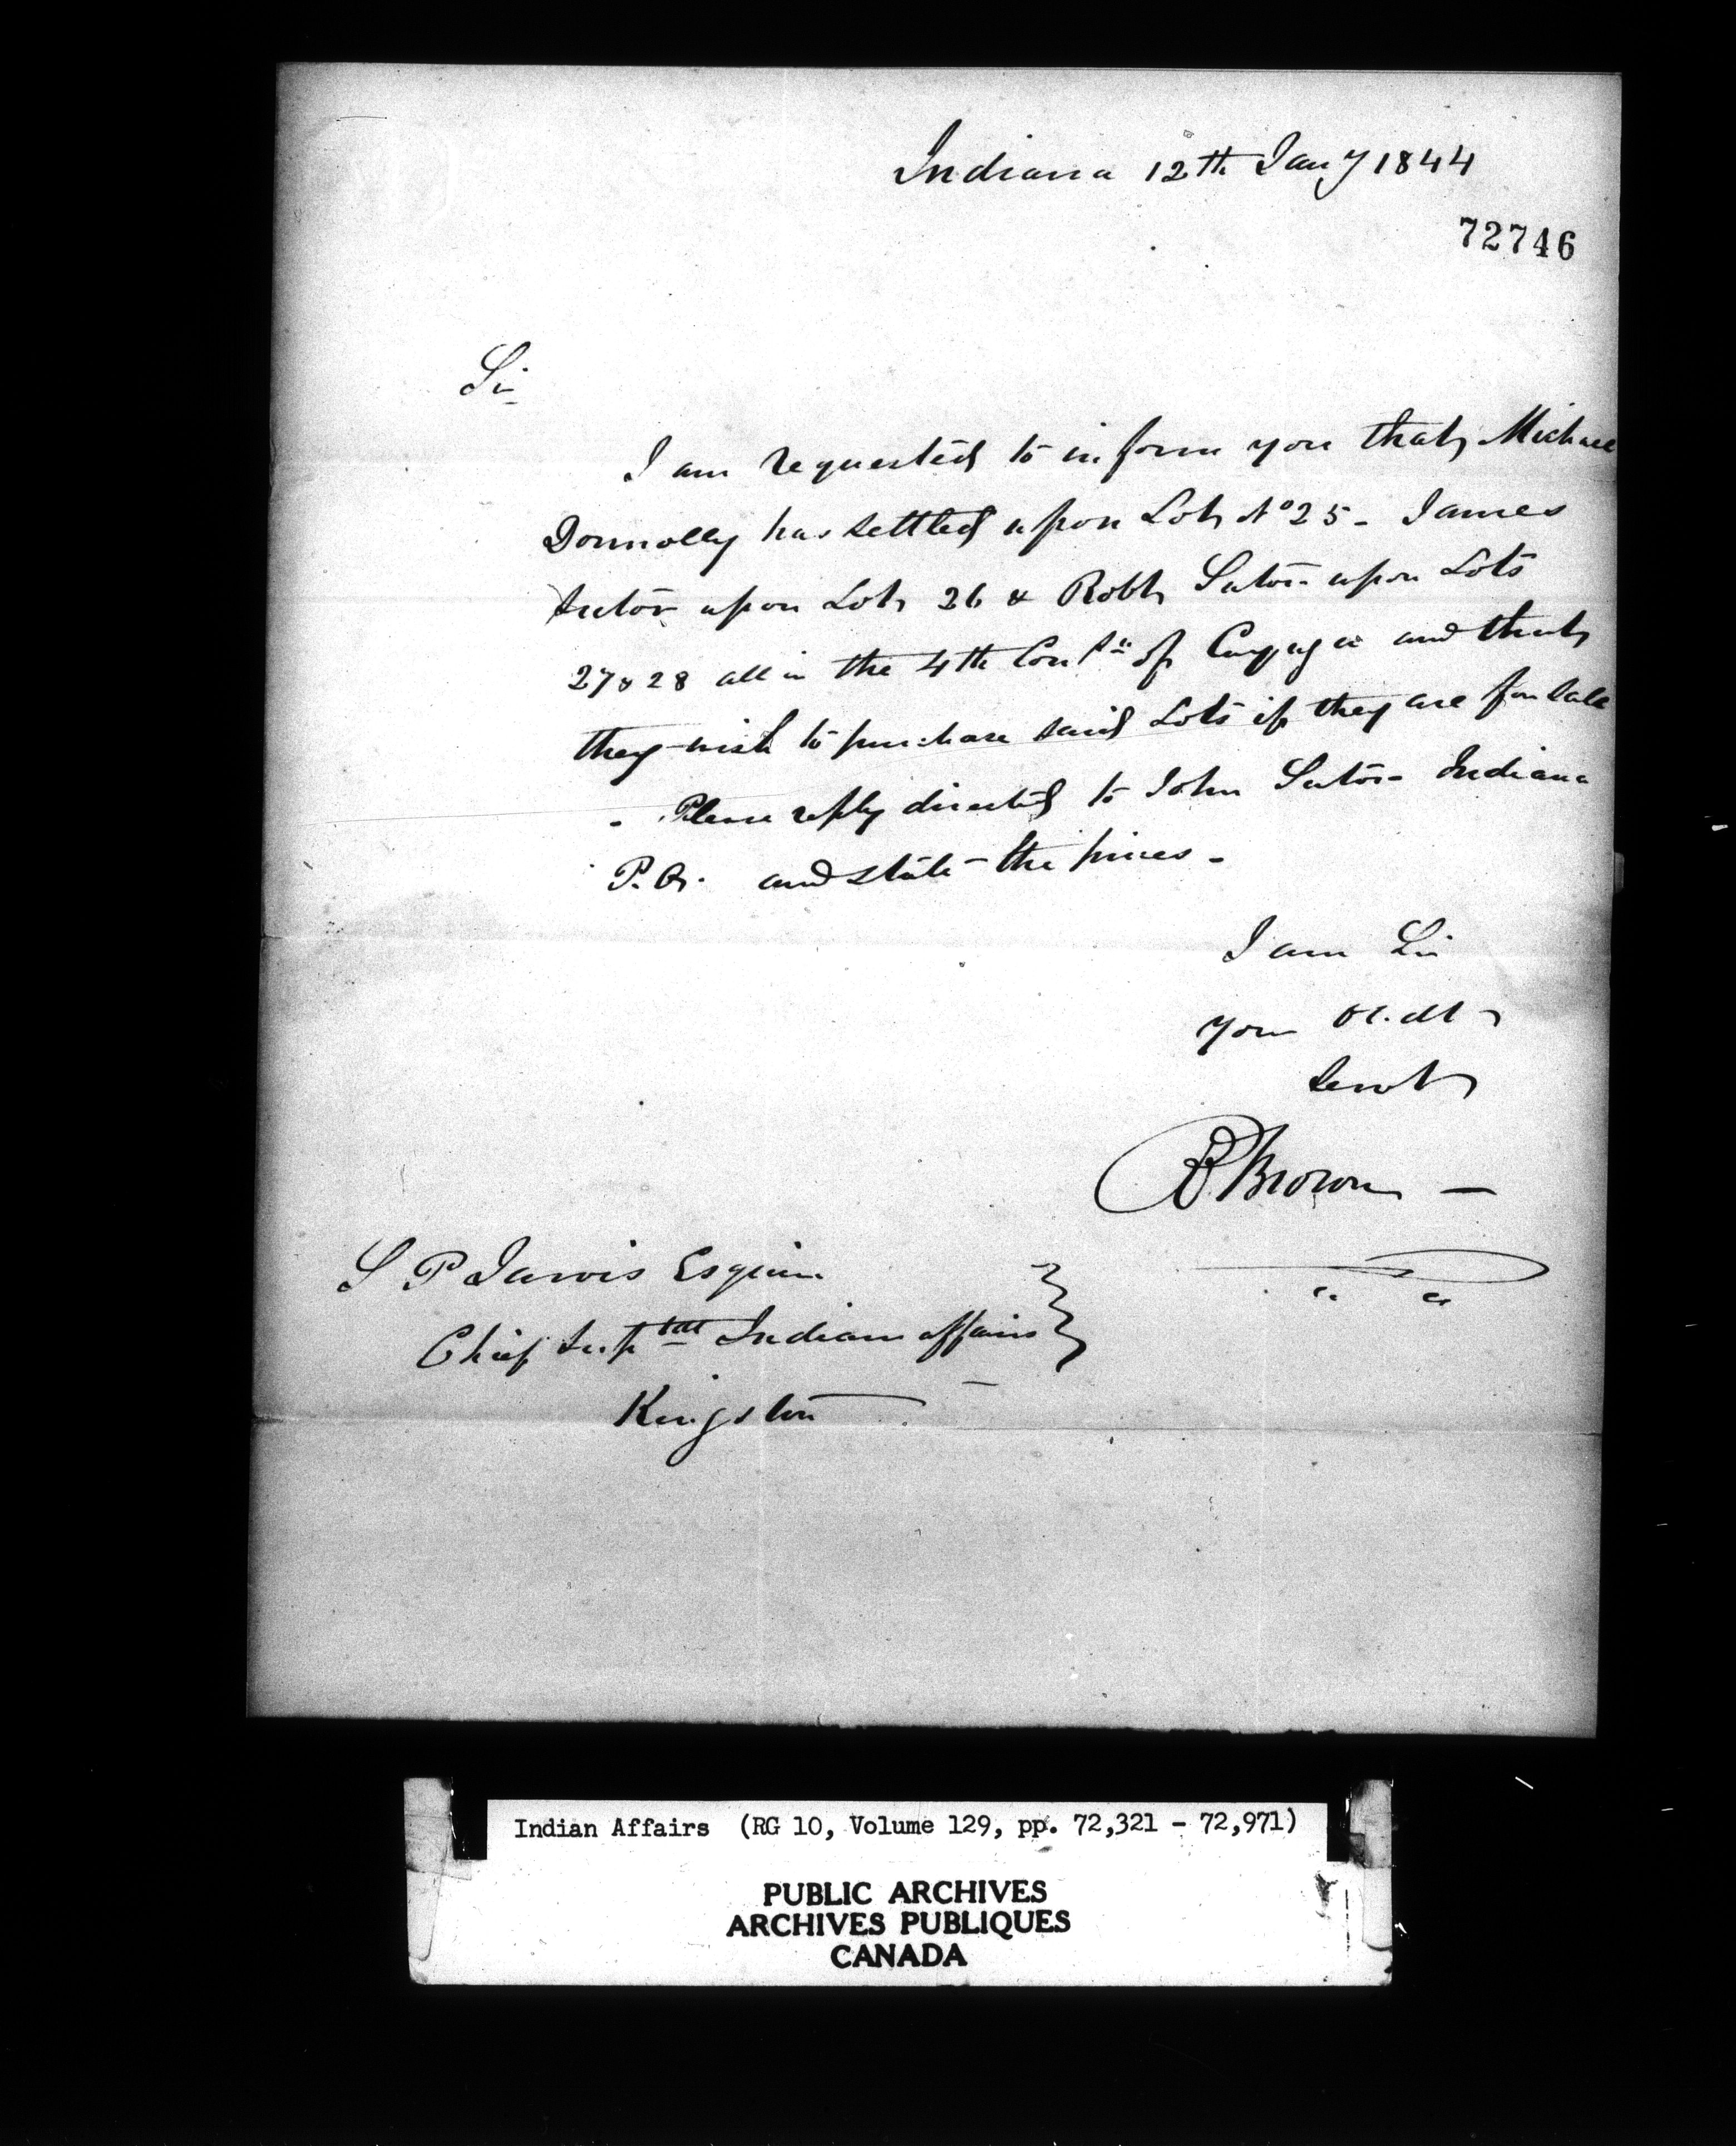 Indiana 12th Jany 1844
72746
Sir
I am requested to inform you that Michael
Donnolly has settled upon Lot No 25 - James
Sutor upon Lot 26 & Robt Sutor upon Lots
27 & 28 all in the 4th Con of Cayuga and that
they wish to purchase said Lots if they are for sale
- Please reply directed to John Sutor Indiana
P.O. and state the prices -
I am Sir
your Obdt
Servt
Brown -
S P Jarvis Esquire
Chief Suptdt Indian affairs
Kingston
Indian Affairs (RG 10, Volume 129, pp. 72,321 - 72,971)
PUBLIC ARCHIVES
ARCHIVES PUBLIQUES
CANADA